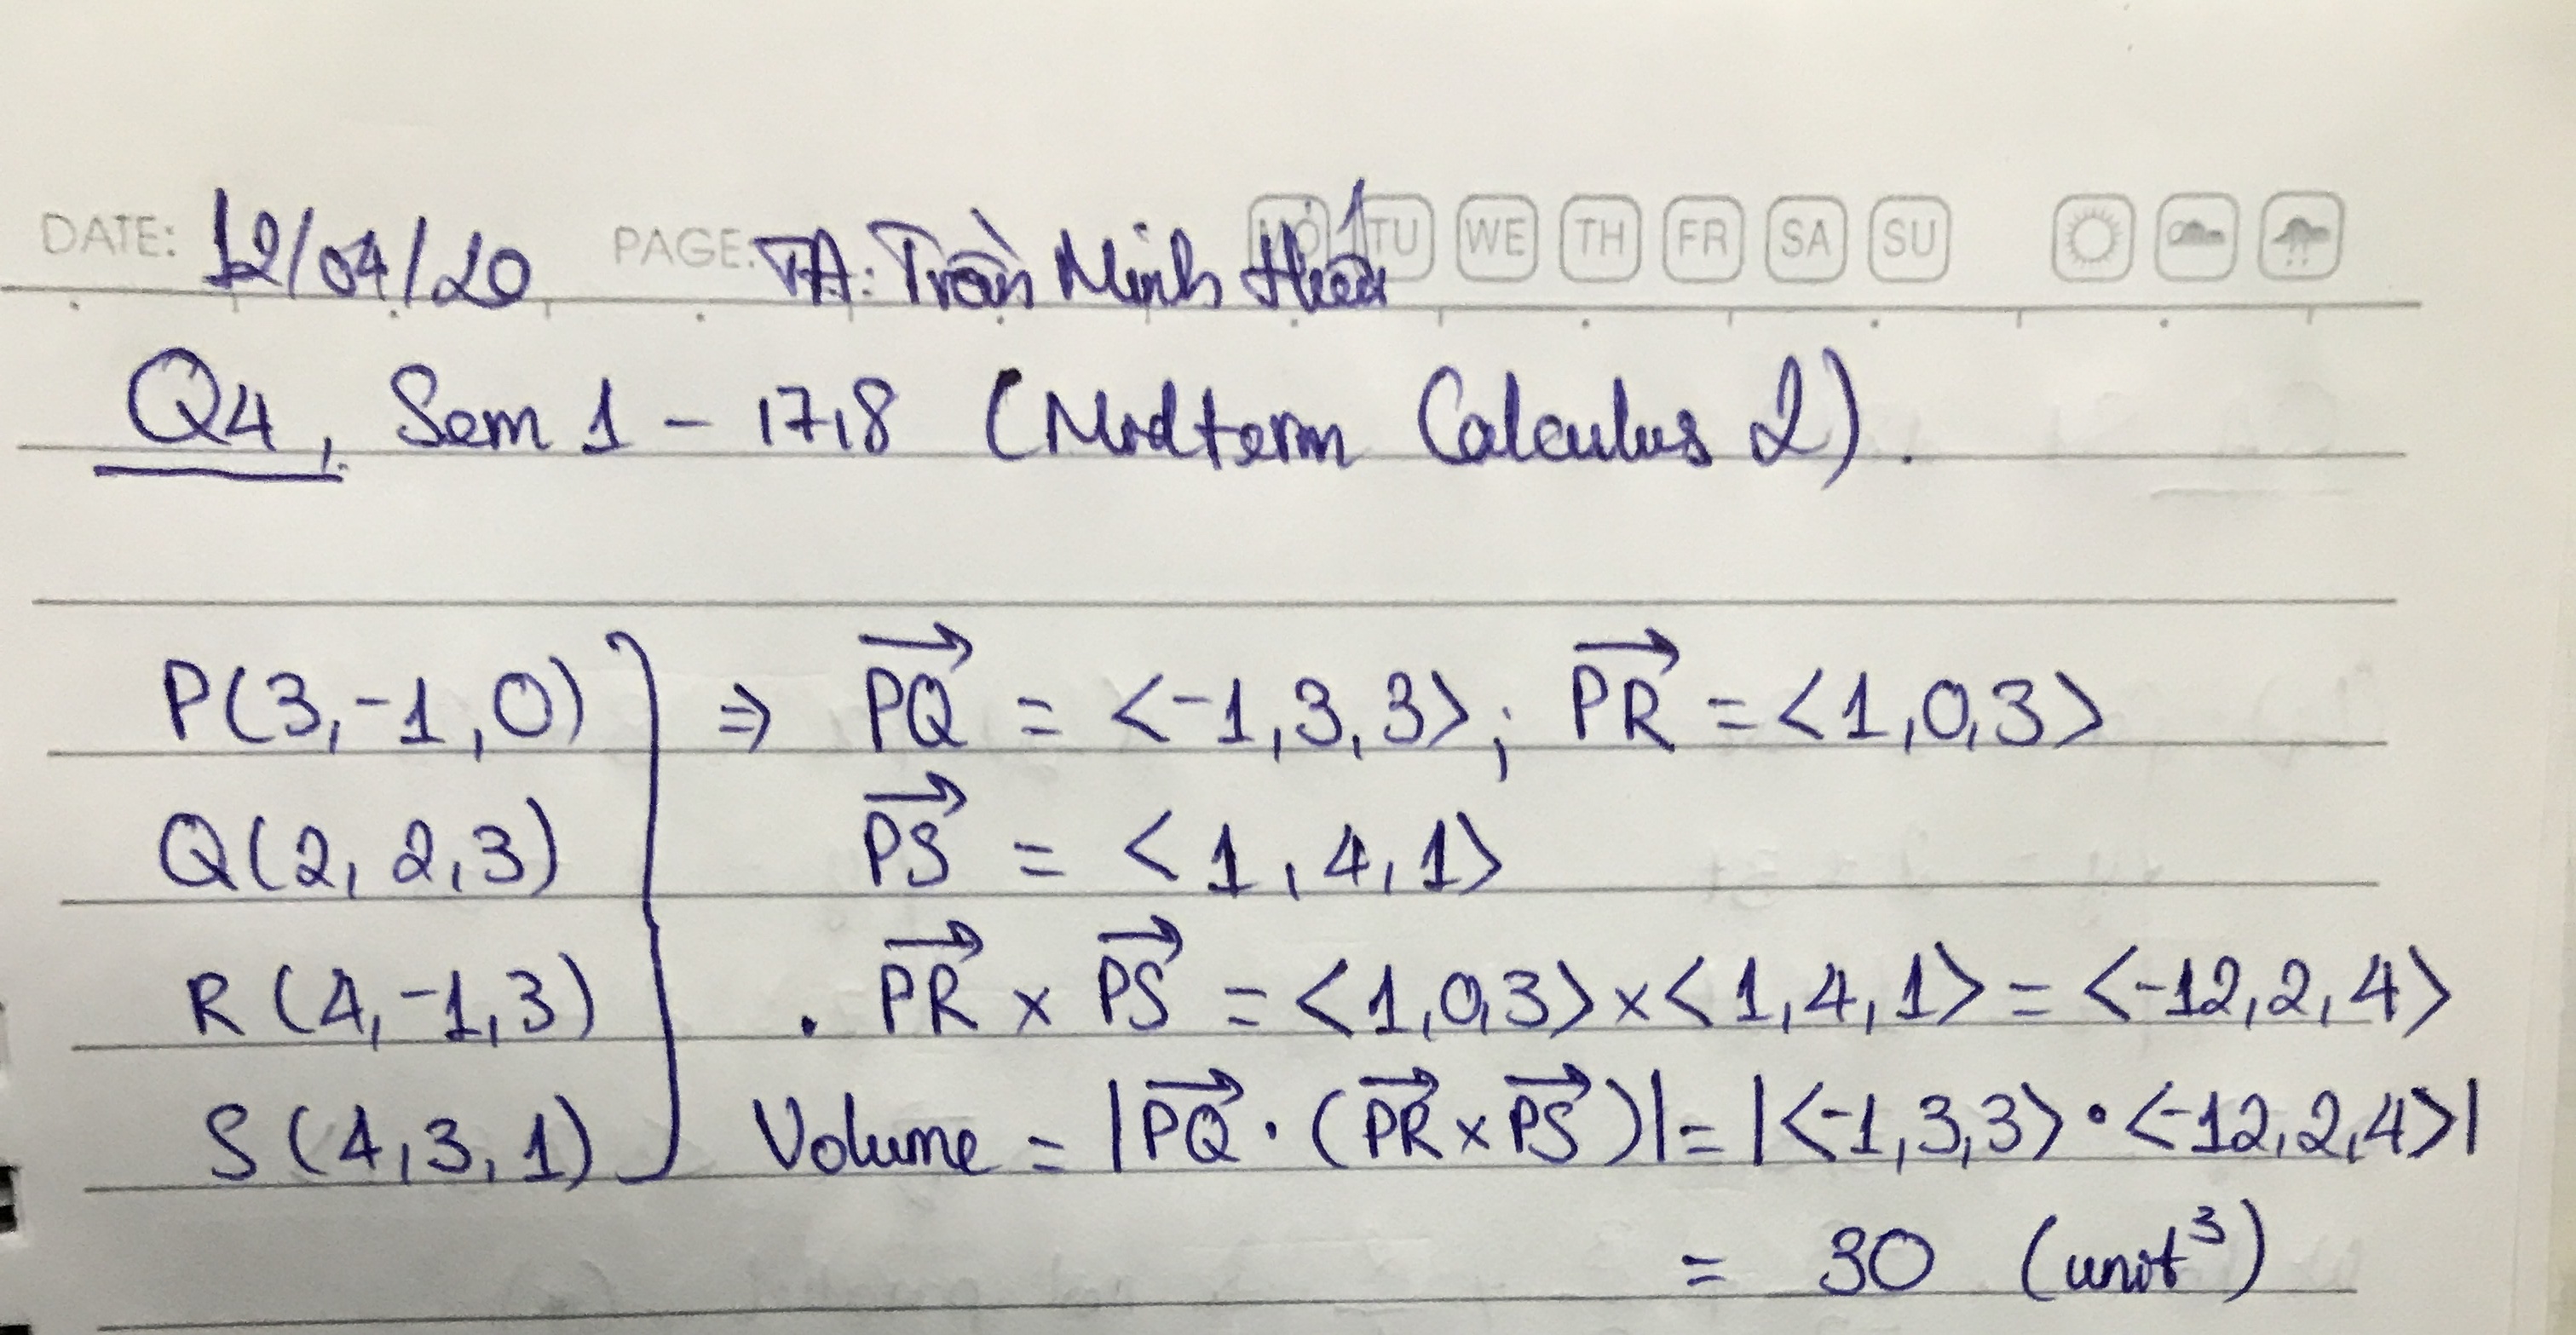 DATE: 12/04/20 PAGE: TA: Trần Minh MO TU WE TH FR SA SU
Q4, Sem 1 - 1718 (Midterm Calculus 2).
P(3,-1,0) ⇒ PQ→ = <-1,3,3>; PR→ = <1,0,3>
Q(2,2,3) PS→ = <1,4,1>
R(4,-1,3) . PR→ × PS→ = <1,0,3>×<1,4,1> = <-12,2,4>
S(4,3,1) Volume = |PQ→ · (PR→ × PS→)| = |<-1,3,3> · <-12,2,4>|
= 30 (unit³)